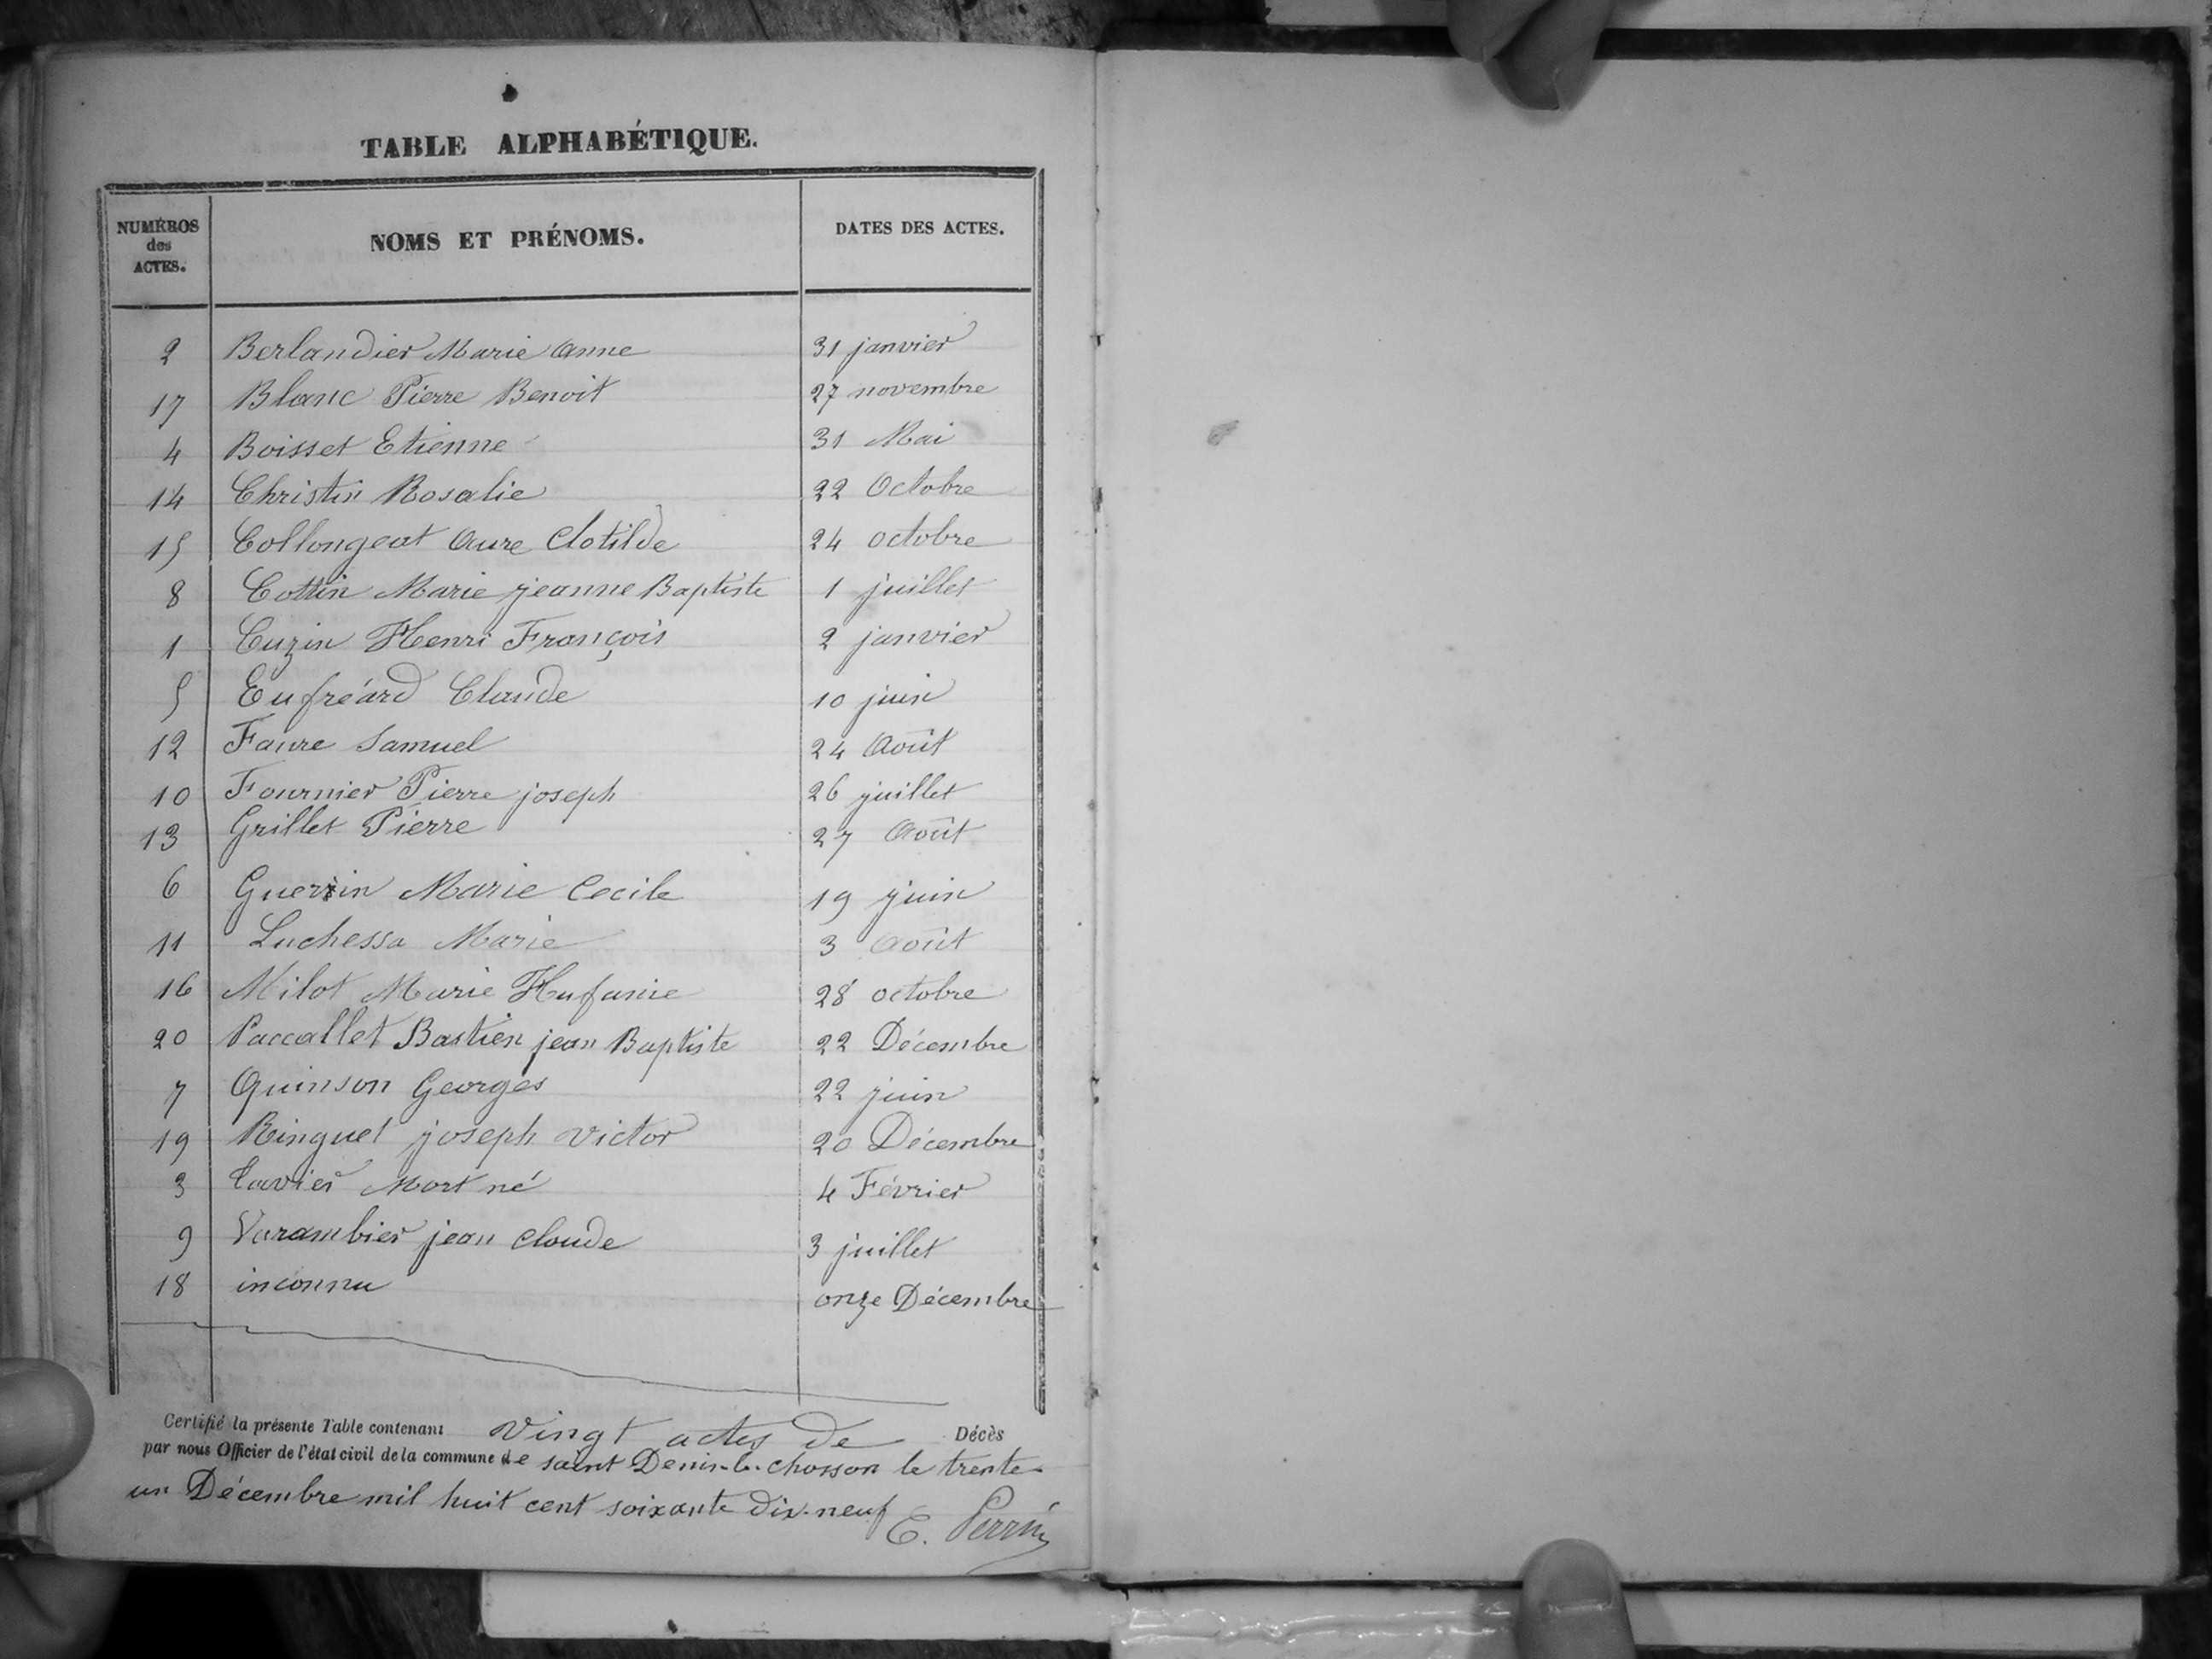 TABLE ALPHABÉTIQUE.
NUMÉROS des ACTES. NOMS ET PRÉNOMS. DATES DES ACTES.
2 Berlandier Marie Anne 31 janvier
17 Blanc Pierre Benoit 27 novembre
4 Boisset Etienne 31 Mai
14 Christin Rosalie 22 Octobre
15 Collongeat Aure Clotilde 24 octobre
8 Cottin Marie jeanne Baptiste 1 juillet
1 Cuzin Henri François 2 janvier
5 Eufréard Claude 10 juin
12 Faure Samuel 24 Août
10 Fournier Pierre joseph 26 juillet
13 Grillet Pierre 27 Août
6 Guerrin Marie Cecile 19 juin
11 Luchessa Marie 3 Août
16 Milot Marie 28 octobre
20 Paccallet Bastien jean Baptiste 22 Décembre
7 Quinson Georges 22 juin
19 Ringuet joseph victor 20 Décembre
3 Mort né 4 Février
9 Varambier jean claude 3 juillet
18 inconnu onze Décembre
Certifié la présente Table contenant vingt actes de Décès
par nous Officier de l'état civil de la commune de saint Denis-le-chosson le trente
un Décembre mil huit cent soixante dix-neuf E. Perrin